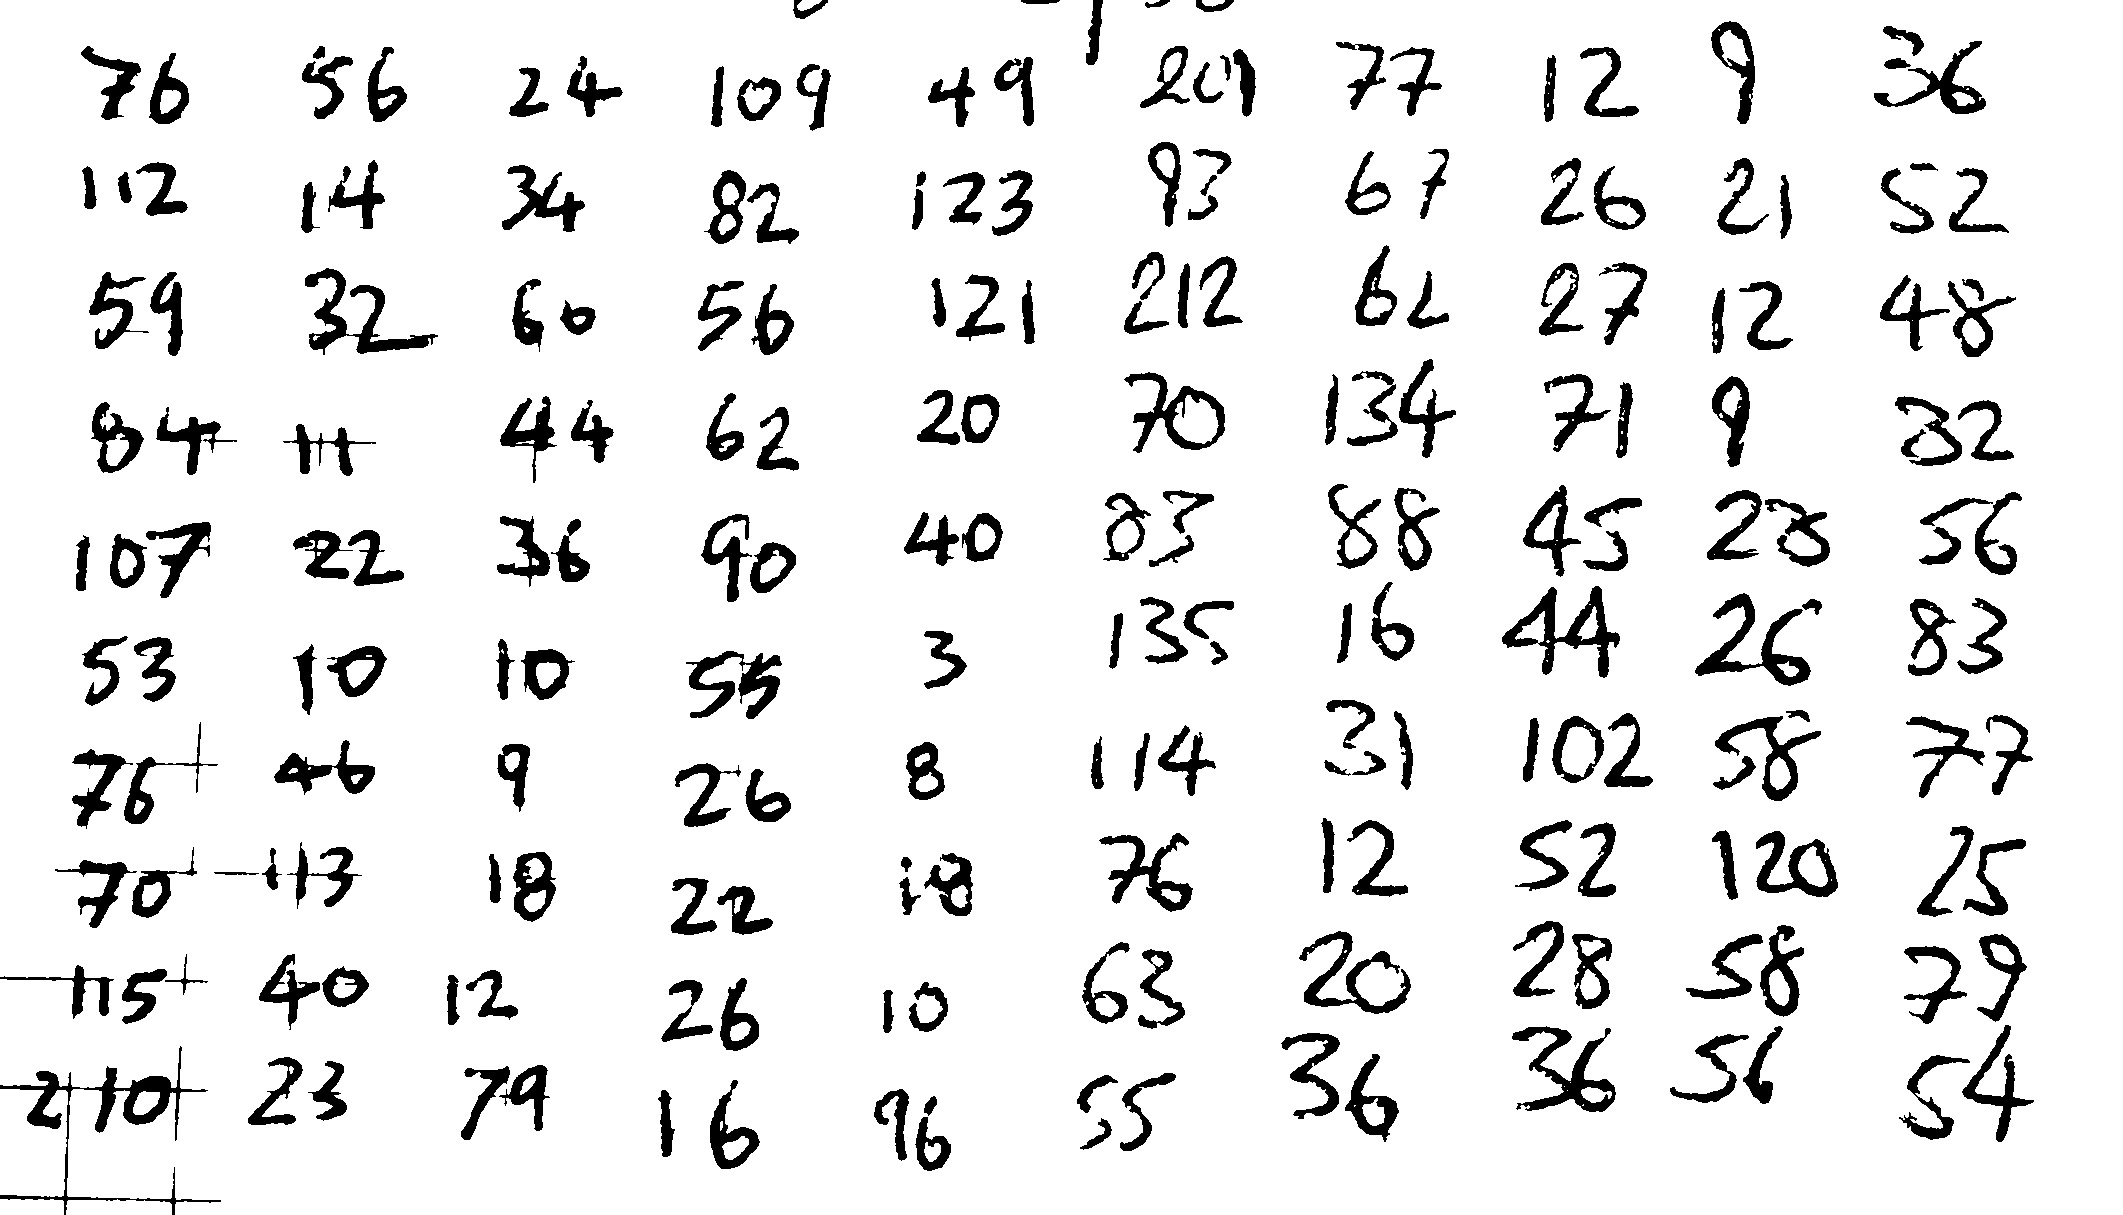 76 56 24 109 49 201 77 12 9 36
112 14 34 82 123 93 67 26 21 52
59 32 60 56 121 212 62 27 12 48
84 11 44 62 20 70 134 71 9 32
107 22 36 90 40 83 88 45 28 56
53 10 10 55 3 135 16 44 26 83
76 46 9 26 8 114 31 102 58 77
70 113 18 22 18 76 12 52 120 25
115 40 12 26 10 63 20 28 58 79
210 23 79 16 96 55 36 36 56 54